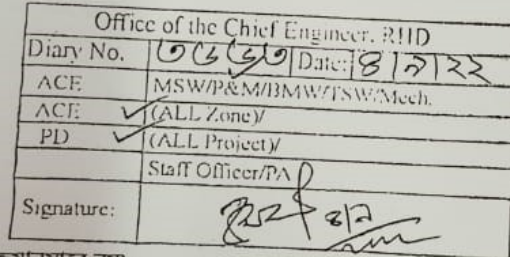 Office of the Chief Engineer, RHD
Diary No. Date: ৪|৯|২২
ACE MSW/P&M/BMW/TSW/Mech.
ACE (ALL Zone)/
PD (ALL Project)/
Staff Officer/PA
Signature: ৪/৯